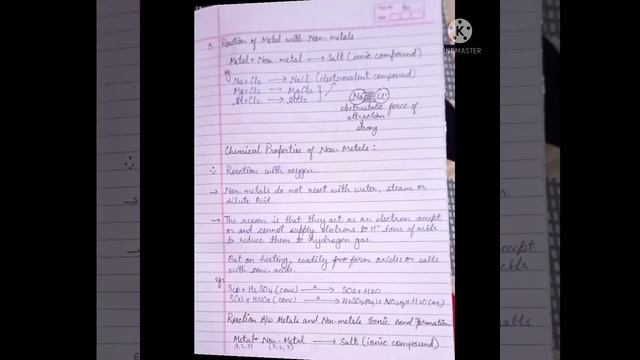 Page No.
Date
K
KINEMASTER
Reaction of Metal with Non-metals
Metal + Non-metal → Salt (ionic compound)
eg
Na + Cl2 → NaCl (electrovalent compound)
Mg + Cl2 → MgCl2
Na Cl
electrostatic force of
attraction
strong
Chemical Properties of Non-Metals:
Reaction with oxygen.
→ Non-metals do not react with water, steam or
dilute Acid.
→ The reason is that they act as an electron accept
or and cannot supply electrons to H+ ions of acids
to reduce them to hydrogen gas.
But on heating, readily form oxides or salts
with conc. acids.
eg:
+ H2SO4 (conc) → SO2 + H2O
+ HNO3 (conc) → H2SO4(aq) + NO2(g) + H2O(aq)
Reaction B/w Metals and Non-metals Ionic Bond Formation
Metal + Non-Metal → Salt (ionic compound)
(1,2,3)